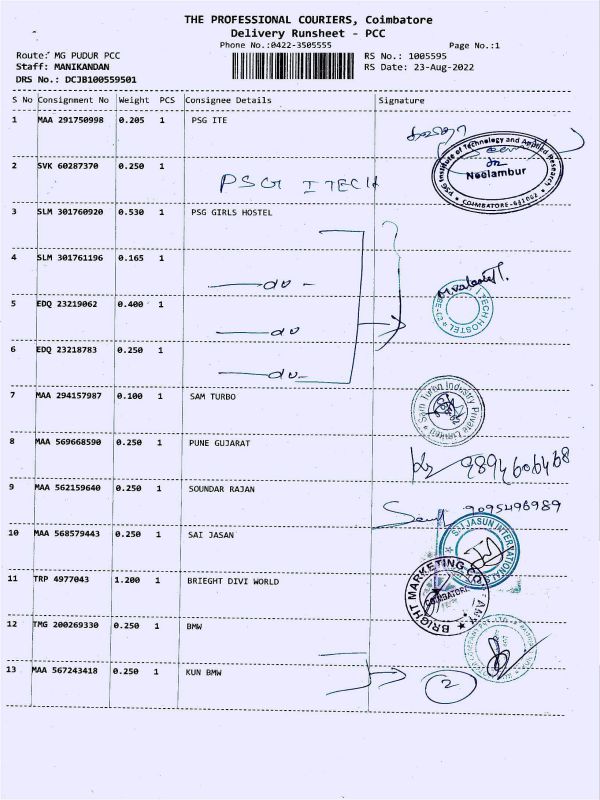 THE PROFESSIONAL COURIERS, Coimbatore
Delivery Runsheet - PCC
Phone No.:0422-3505555 Page No.:1
Route: MG PUDUR PCC RS No.: 1005595
Staff: MANIKANDAN RS Date: 23-Aug-2022
DRS No.: DCJB100559501
S No Consignment No Weight PCS Consignee Details Signature
1 MAA 291750998 0.205 1 PSG ITE
PSG Institute of Technology and Applied Research
Neelambur
COIMBATORE-641062
2 SVK 60287370 0.250 1 PSG ITECH
3 SLM 301760920 0.530 1 PSG GIRLS HOSTEL
4 SLM 301761196 0.165 1 do
I TECH HOSTEL
5 EDQ 23219062 0.400 1 do
6 EDQ 23218783 0.250 1 do
7 MAA 294157987 0.100 1 SAM TURBO
Sam Turbo Industry Private Limited
8 MAA 569668590 0.250 1 PUNE GUJARAT
9894606468
9 MAA 562159640 0.250 1 SOUNDAR RAJAN
9095496989
10 MAA 568579443 0.250 1 SAI JASAN
SAI JASUN INTERNATIONALS
11 TRP 4977043 1.200 1 BRIEGHT DIVI WORLD
BRIGHT MARKETING COMPANY
COIMBATORE
12 TMG 200269330 0.250 1 BMW
13 MAA 567243418 0.250 1 KUN BMW 2